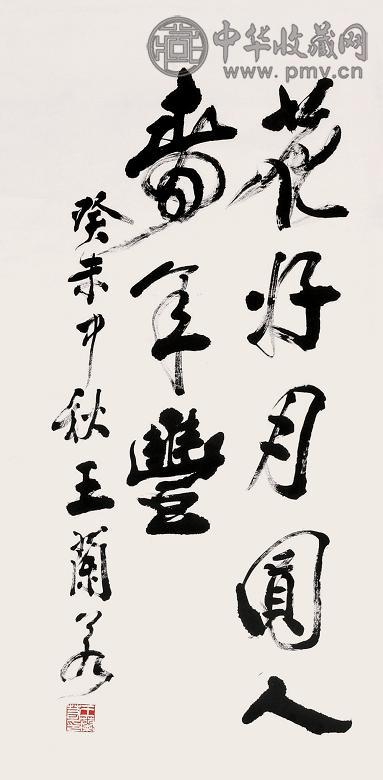 中华收藏网
www.pmv.cn
花好月圓人
壽年豐
癸未中秋王蘭若